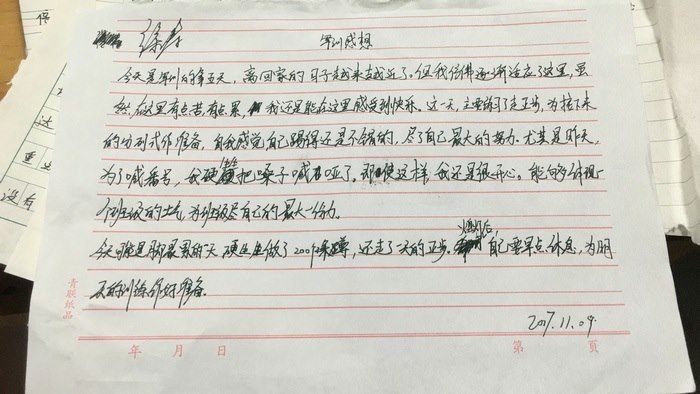 保
徐寿
军训感想
今天是军训的第五天，离回家的日子越来越近了。但我仿佛逐渐适应了这里，虽
然在这里有点苦有点累，但我还是能在这里感受到快乐。这一天，主要练习了走正步，为接下来
的分列式作准备，自我感觉自己踢得还是不错的，尽了自己最大的努力。尤其是昨天，
为了喊番号，我硬生生把嗓子喊哑了。即使这样，我还是很开心。能够体现一
个班级的士气，为班级尽自己的最大一份力。
今天可能是最累的一天，硬生生做了200个深蹲，还走了一天的正步。自己要早点休息，为明
天的训练作好准备。
2017.11.09.
青联纸品
年 月 日
第 頁
达
重
没有